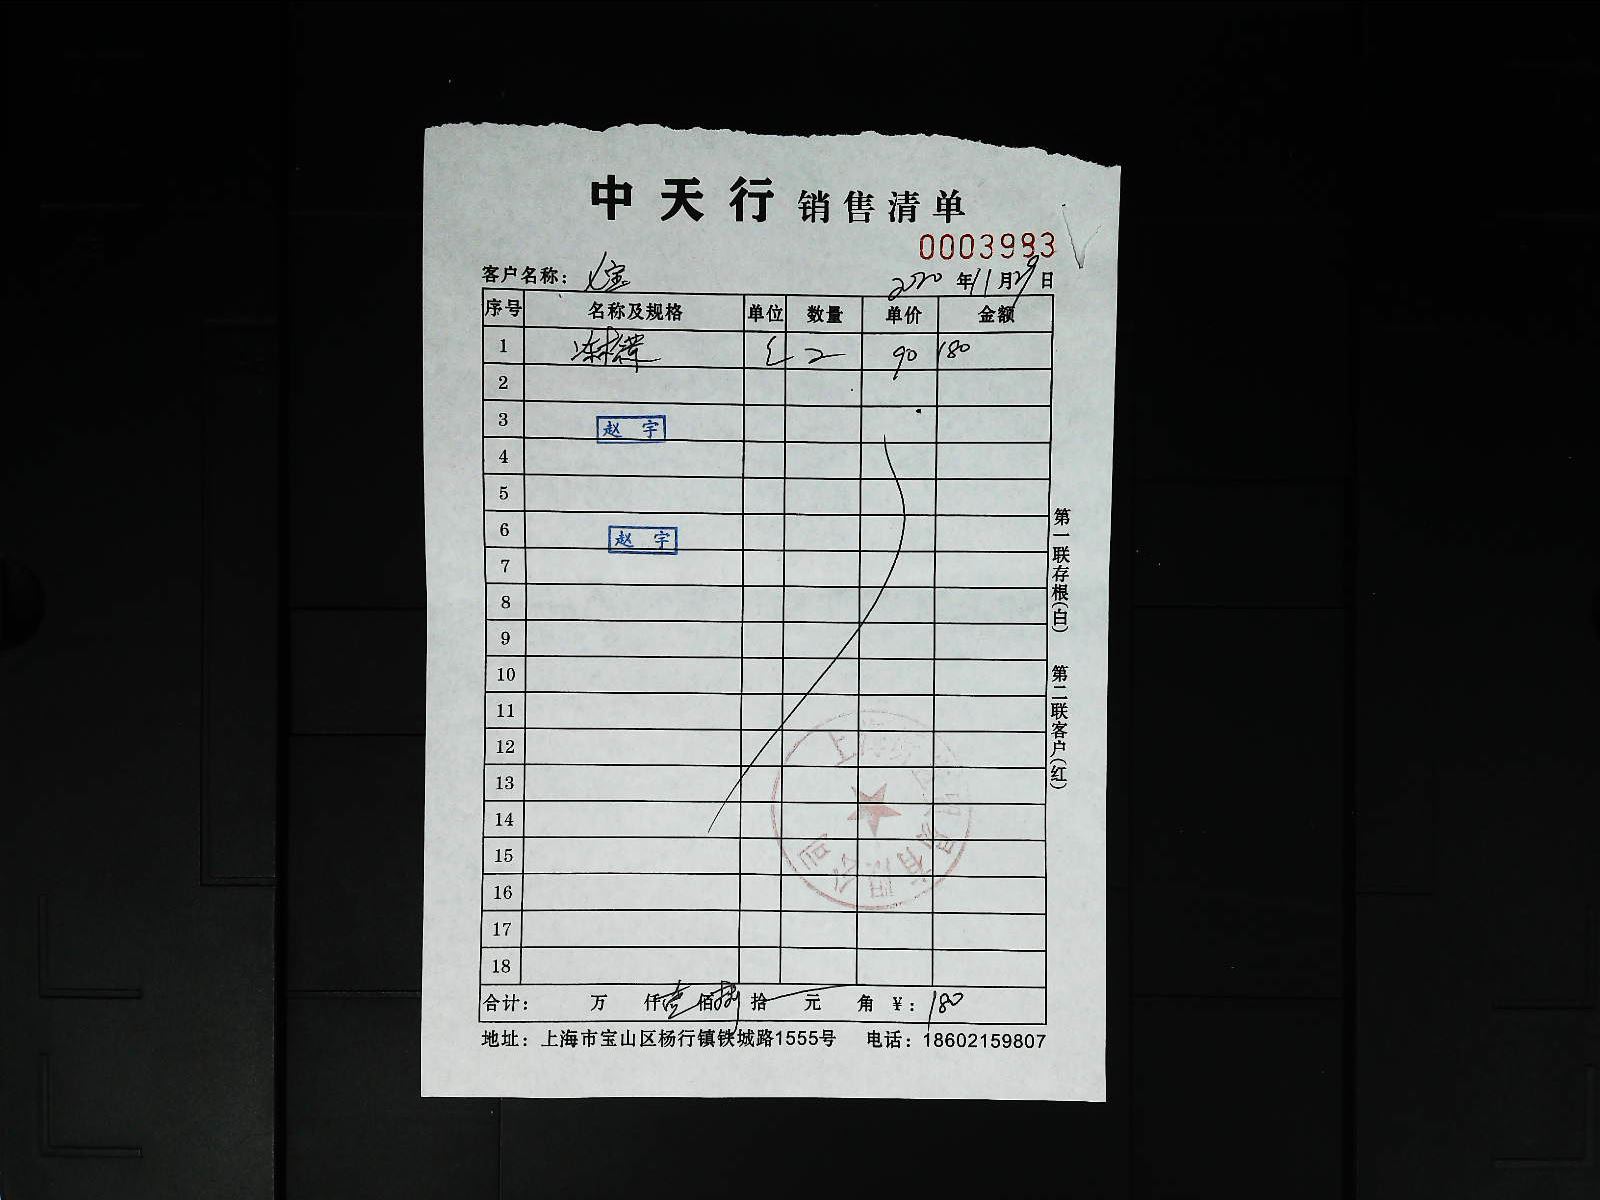 中天行 销售清单
0003983
客户名称： 2020年11月29日
序号 名称及规格 单位 数量 单价 金额
1 2 90 180
2
3 赵 宇
4
5
6 赵 宇
7
8
9
10
11
12
13
14
15
16
17
18
上海 有限公司
合计： 万 仟壹佰捌拾 元 角 ￥：180
地址：上海市宝山区杨行镇铁城路1555号 电话：18602159807
第一联存根(白) 第二联客户(红)